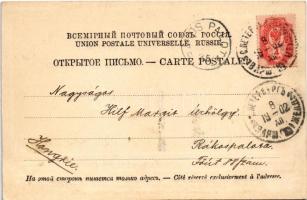 ВСЕМІРНЫЙ ПОЧТОВЫЙ СОЮЗЪ. РОССІЯ.
UNION POSTALE UNIVERSELLE. RUSSIE
ОТКРЫТОЕ ПИСЬМО. — CARTE POSTALE
Nagyságos
Hilf Margit úrhölgy.
Rákospalota.
Hongrie
Főút
На этой сторонѣ пишется только адресъ. — Côté réservé exclusivement à l'adresse.